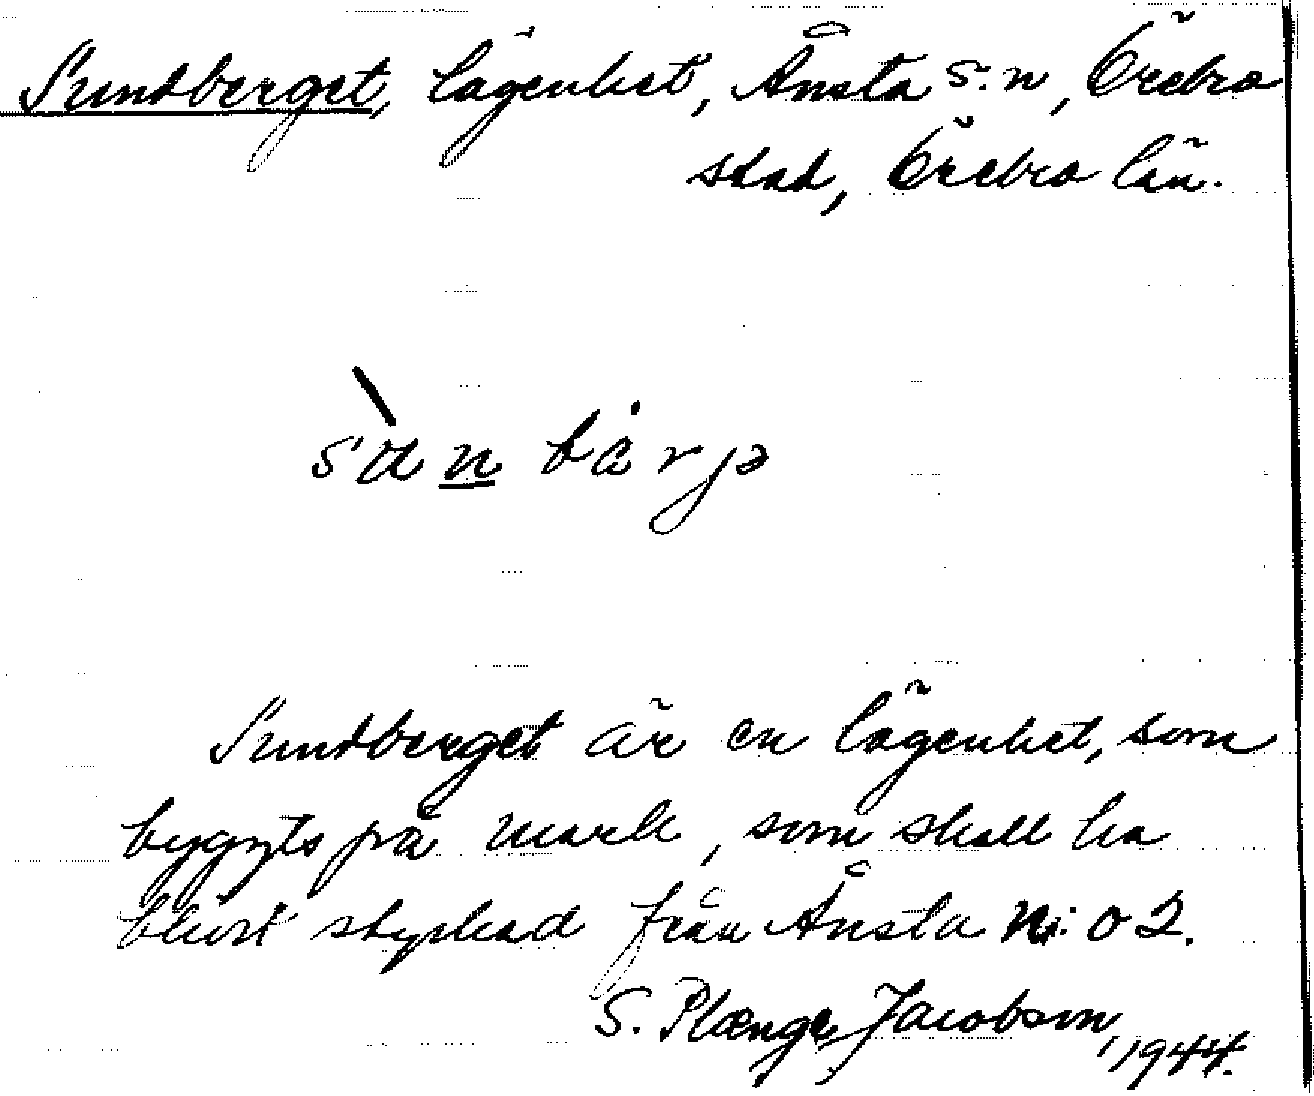 Sundberget, lägenhet, Ånsta s:n, Örebro
stad, Örebro län.
sùn bärjə
Sundberget är en lägenhet, som
byggts på mark, som skall ha
blivit styckad från Ånsta N:o 2.
S. Plænge Jacobson, 1944.